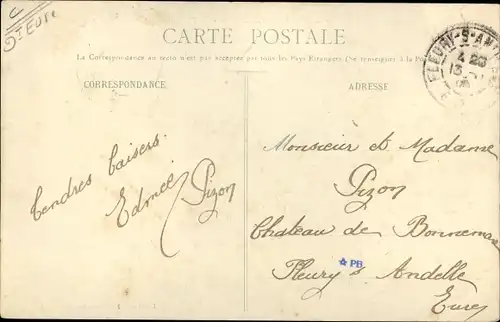 Eure
CARTE POSTALE
La Correspondance au recto n'est pas acceptée par tous les Pays Etrangers (Se renseigner à la Poste)
CORRESPONDANCE
ADRESSE
FLEURY-S-AN
4 20
13
Tendres baisers.
Edmée Pizon
Monsieur et Madame
Pizon
Chateau de Bonnemare
PB
Fleury s Andelle
Eure